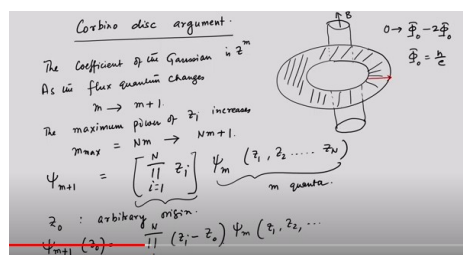 Corbino disc argument.
The coefficient of the Gaussian is z^m
As the flux quantum changes
m → m+1.
The maximum power of z_i increases
m_max = Nm → Nm+1.
ψ_{m+1} = [∏_{i=1}^{N} z_i] ψ_m (z_1, z_2 ..... z_N)
m quanta.
z_0 : arbitrary origin.
ψ_{m+1} (z_0) = ∏^{N} (z_i - z_0) ψ_m (z_1, z_2, ...
B
0 → Φ_0 - 2Φ_0
Φ_0 = h/e